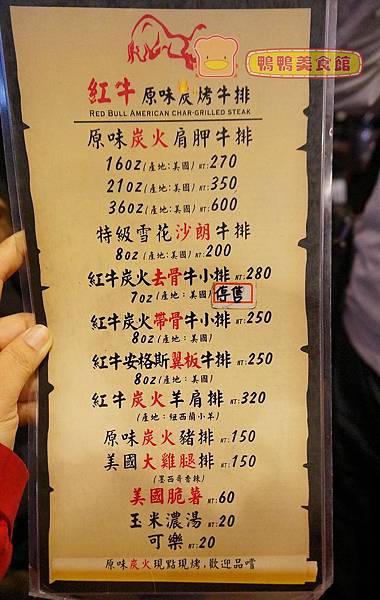 鴨鴨美食館
紅牛 原味炭烤牛排
RED BULL AMERICAN CHAR-GRILLED STEAK
原味炭火肩胛牛排
16oz(產地:美國) NT:270
21oz(產地:美國) NT:350
36oz(產地:美國) NT:600
特級雪花沙朗牛排
8oz(產地:美國) NT:200
紅牛炭火去骨牛小排 NT:280
7oz(產地:美國) 停售
紅牛炭火帶骨牛小排 NT:250
8oz(產地:美國)
紅牛安格斯翼板牛排 NT:250
8oz(產地:美國)
紅牛炭火羊肩排 NT:320
(產地:紐西蘭小羊)
原味炭火豬排 NT:150
美國大雞腿排 NT:150
(墨西哥香辣)
美國脆薯 NT:60
玉米濃湯 NT:20
可樂 NT:20
原味炭火現點現烤,歡迎品嚐